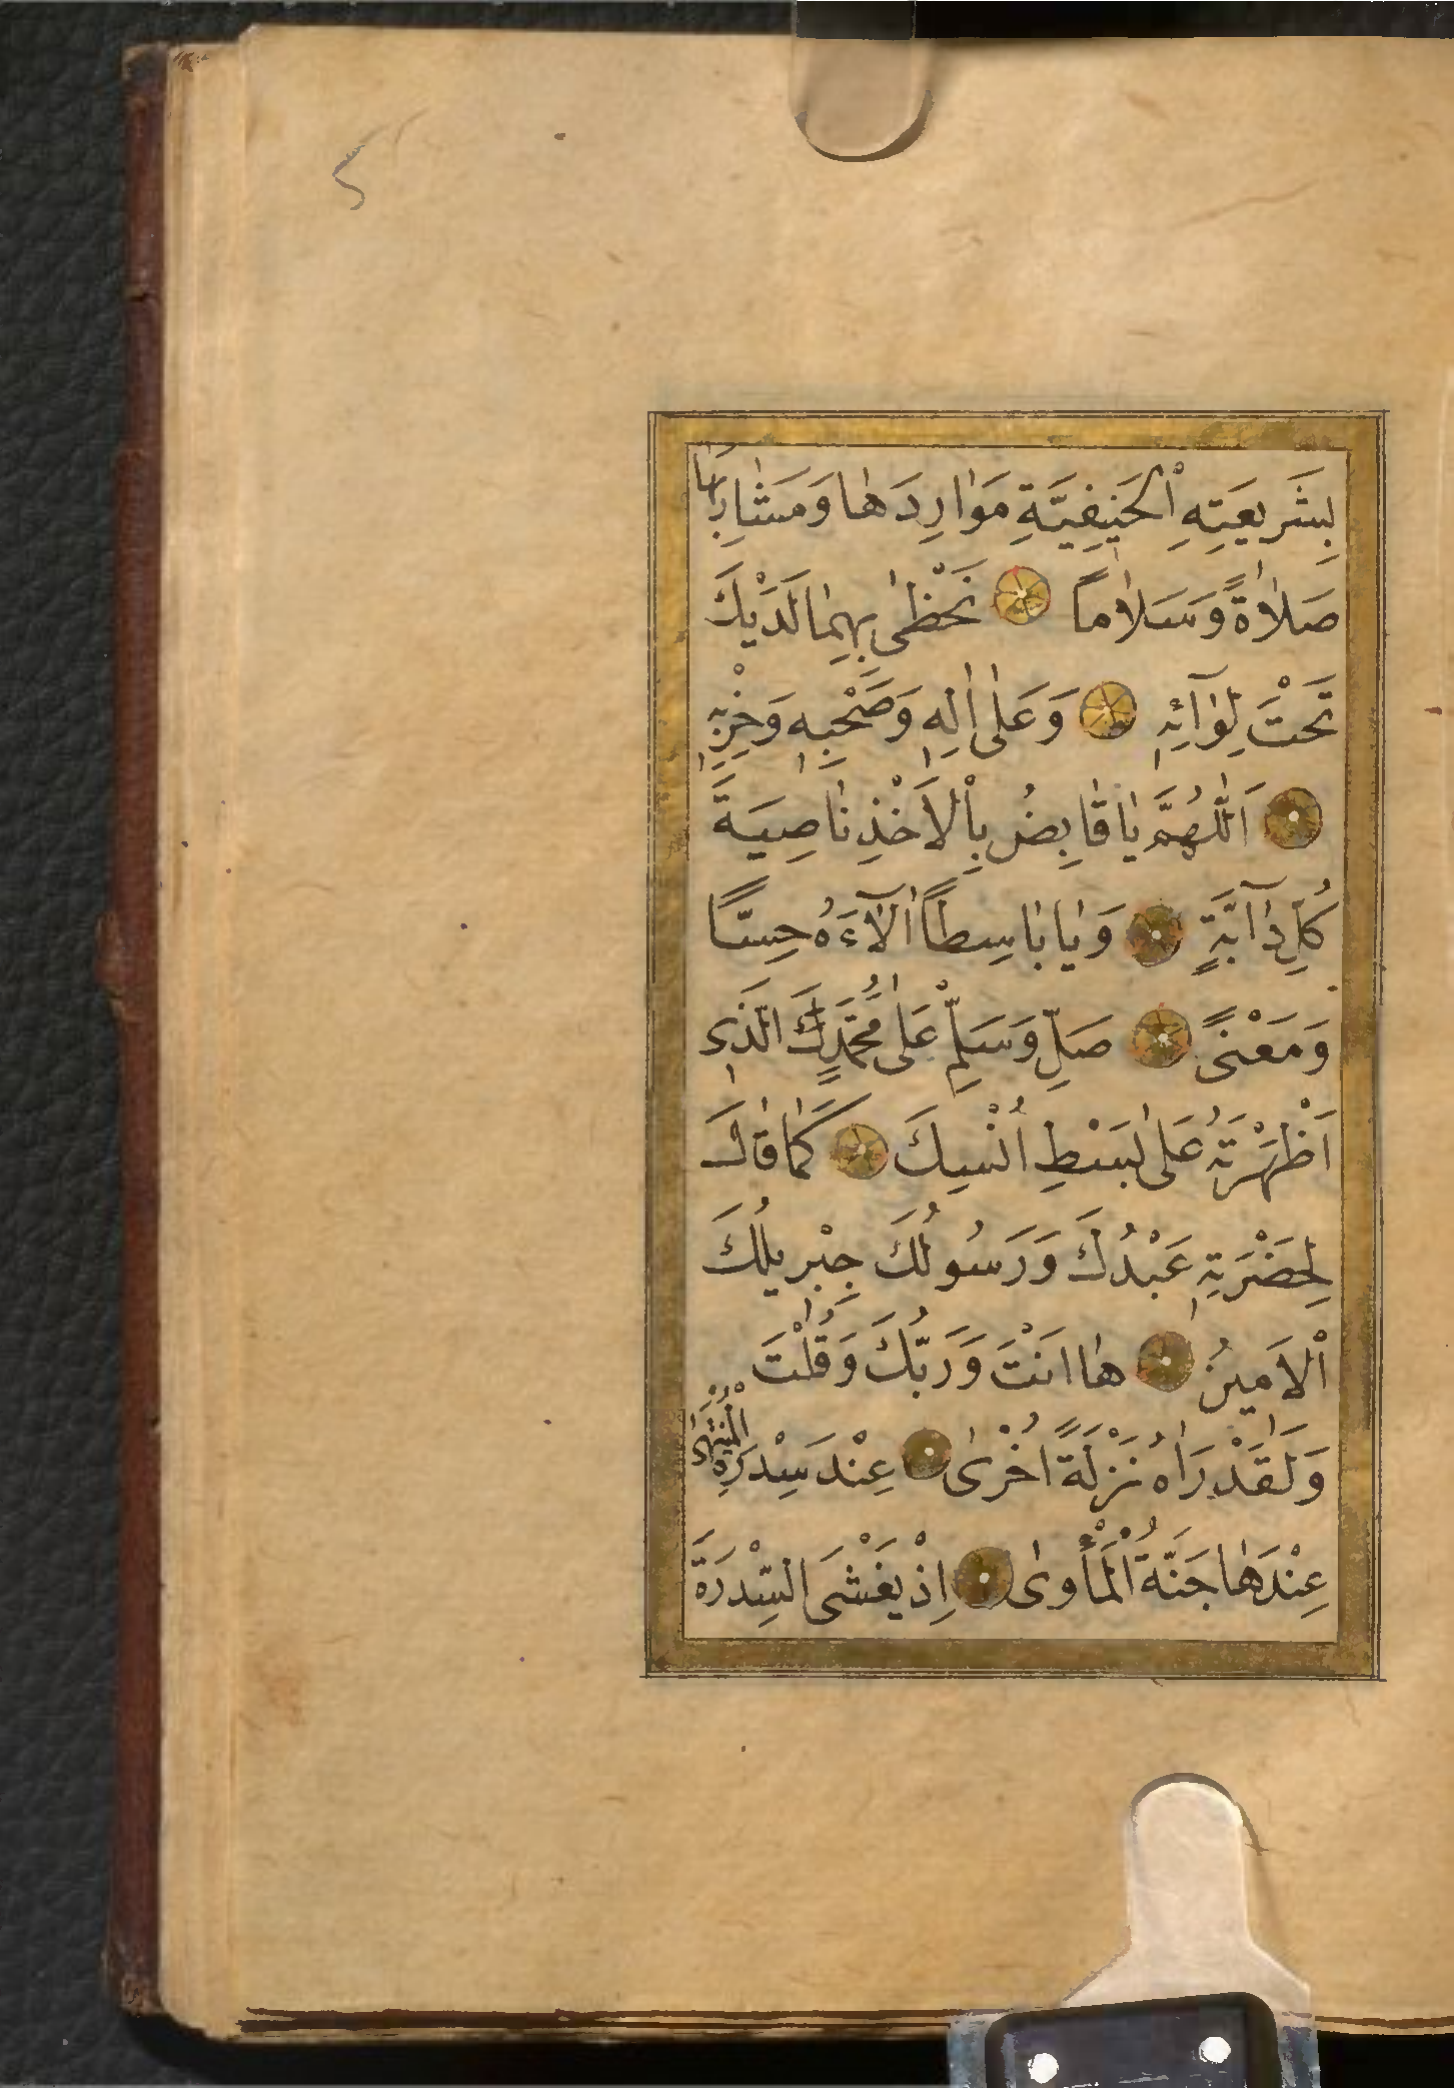 بِشَرِيعَتِهِ الْحَنِيفِيَّةِ مَوَارِدَهَا وَمَشَارِبَهَا
صَلَاةً وَسَلَامًا نَحْظٰى بِهِمَا لَدَيْكَ
تَحْتَ لِوَآئِهِ وَعَلٰى اٰلِهِ وَصَحْبِهِ وَحِزْبِهِ
اَللّٰهُمَّ يَا قَابِضُ بِالْاَخْذِ نَاصِيَةَ
كُلِّ دَآبَّةٍ وَيَا بَاسِطًا اٰلَآءَهُ حِسًّا
وَمَعْنًى صَلِّ وَسَلِّمْ عَلٰى مُحَمَّدِكَ الَّذِى
اَظْهَرْتَهُ عَلٰى بَسْطِ اُنْسِكَ كَمَا قَالَ
لِحَضْرَتِهِ عَبْدُكَ وَرَسُولُكَ جِبْرِيلُكَ
الْاَمِينُ هَا اَنْتَ وَرَبُّكَ وَقُلْتَ
وَلَقَدْ رَاٰهُ نَزْلَةً اُخْرٰى عِنْدَ سِدْرَةِ الْمُنْتَهٰى
عِنْدَهَا جَنَّةُ الْمَأْوٰى اِذْ يَغْشَى السِّدْرَةَ